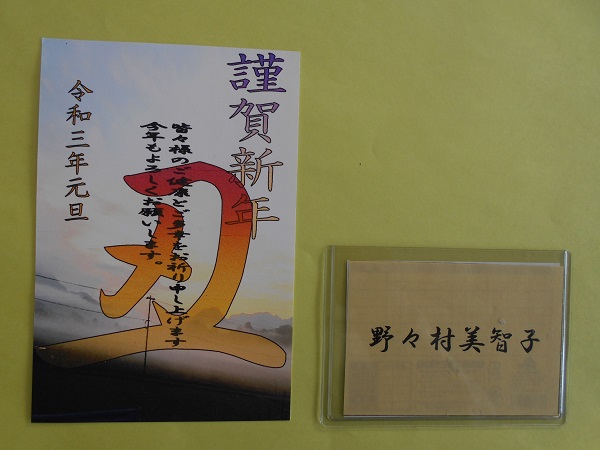 謹賀新年
皆々様のご健康とご多幸をお祈り申し上げます
今年もよろしくお願いします。
丑
令和三年元旦
野々村美智子